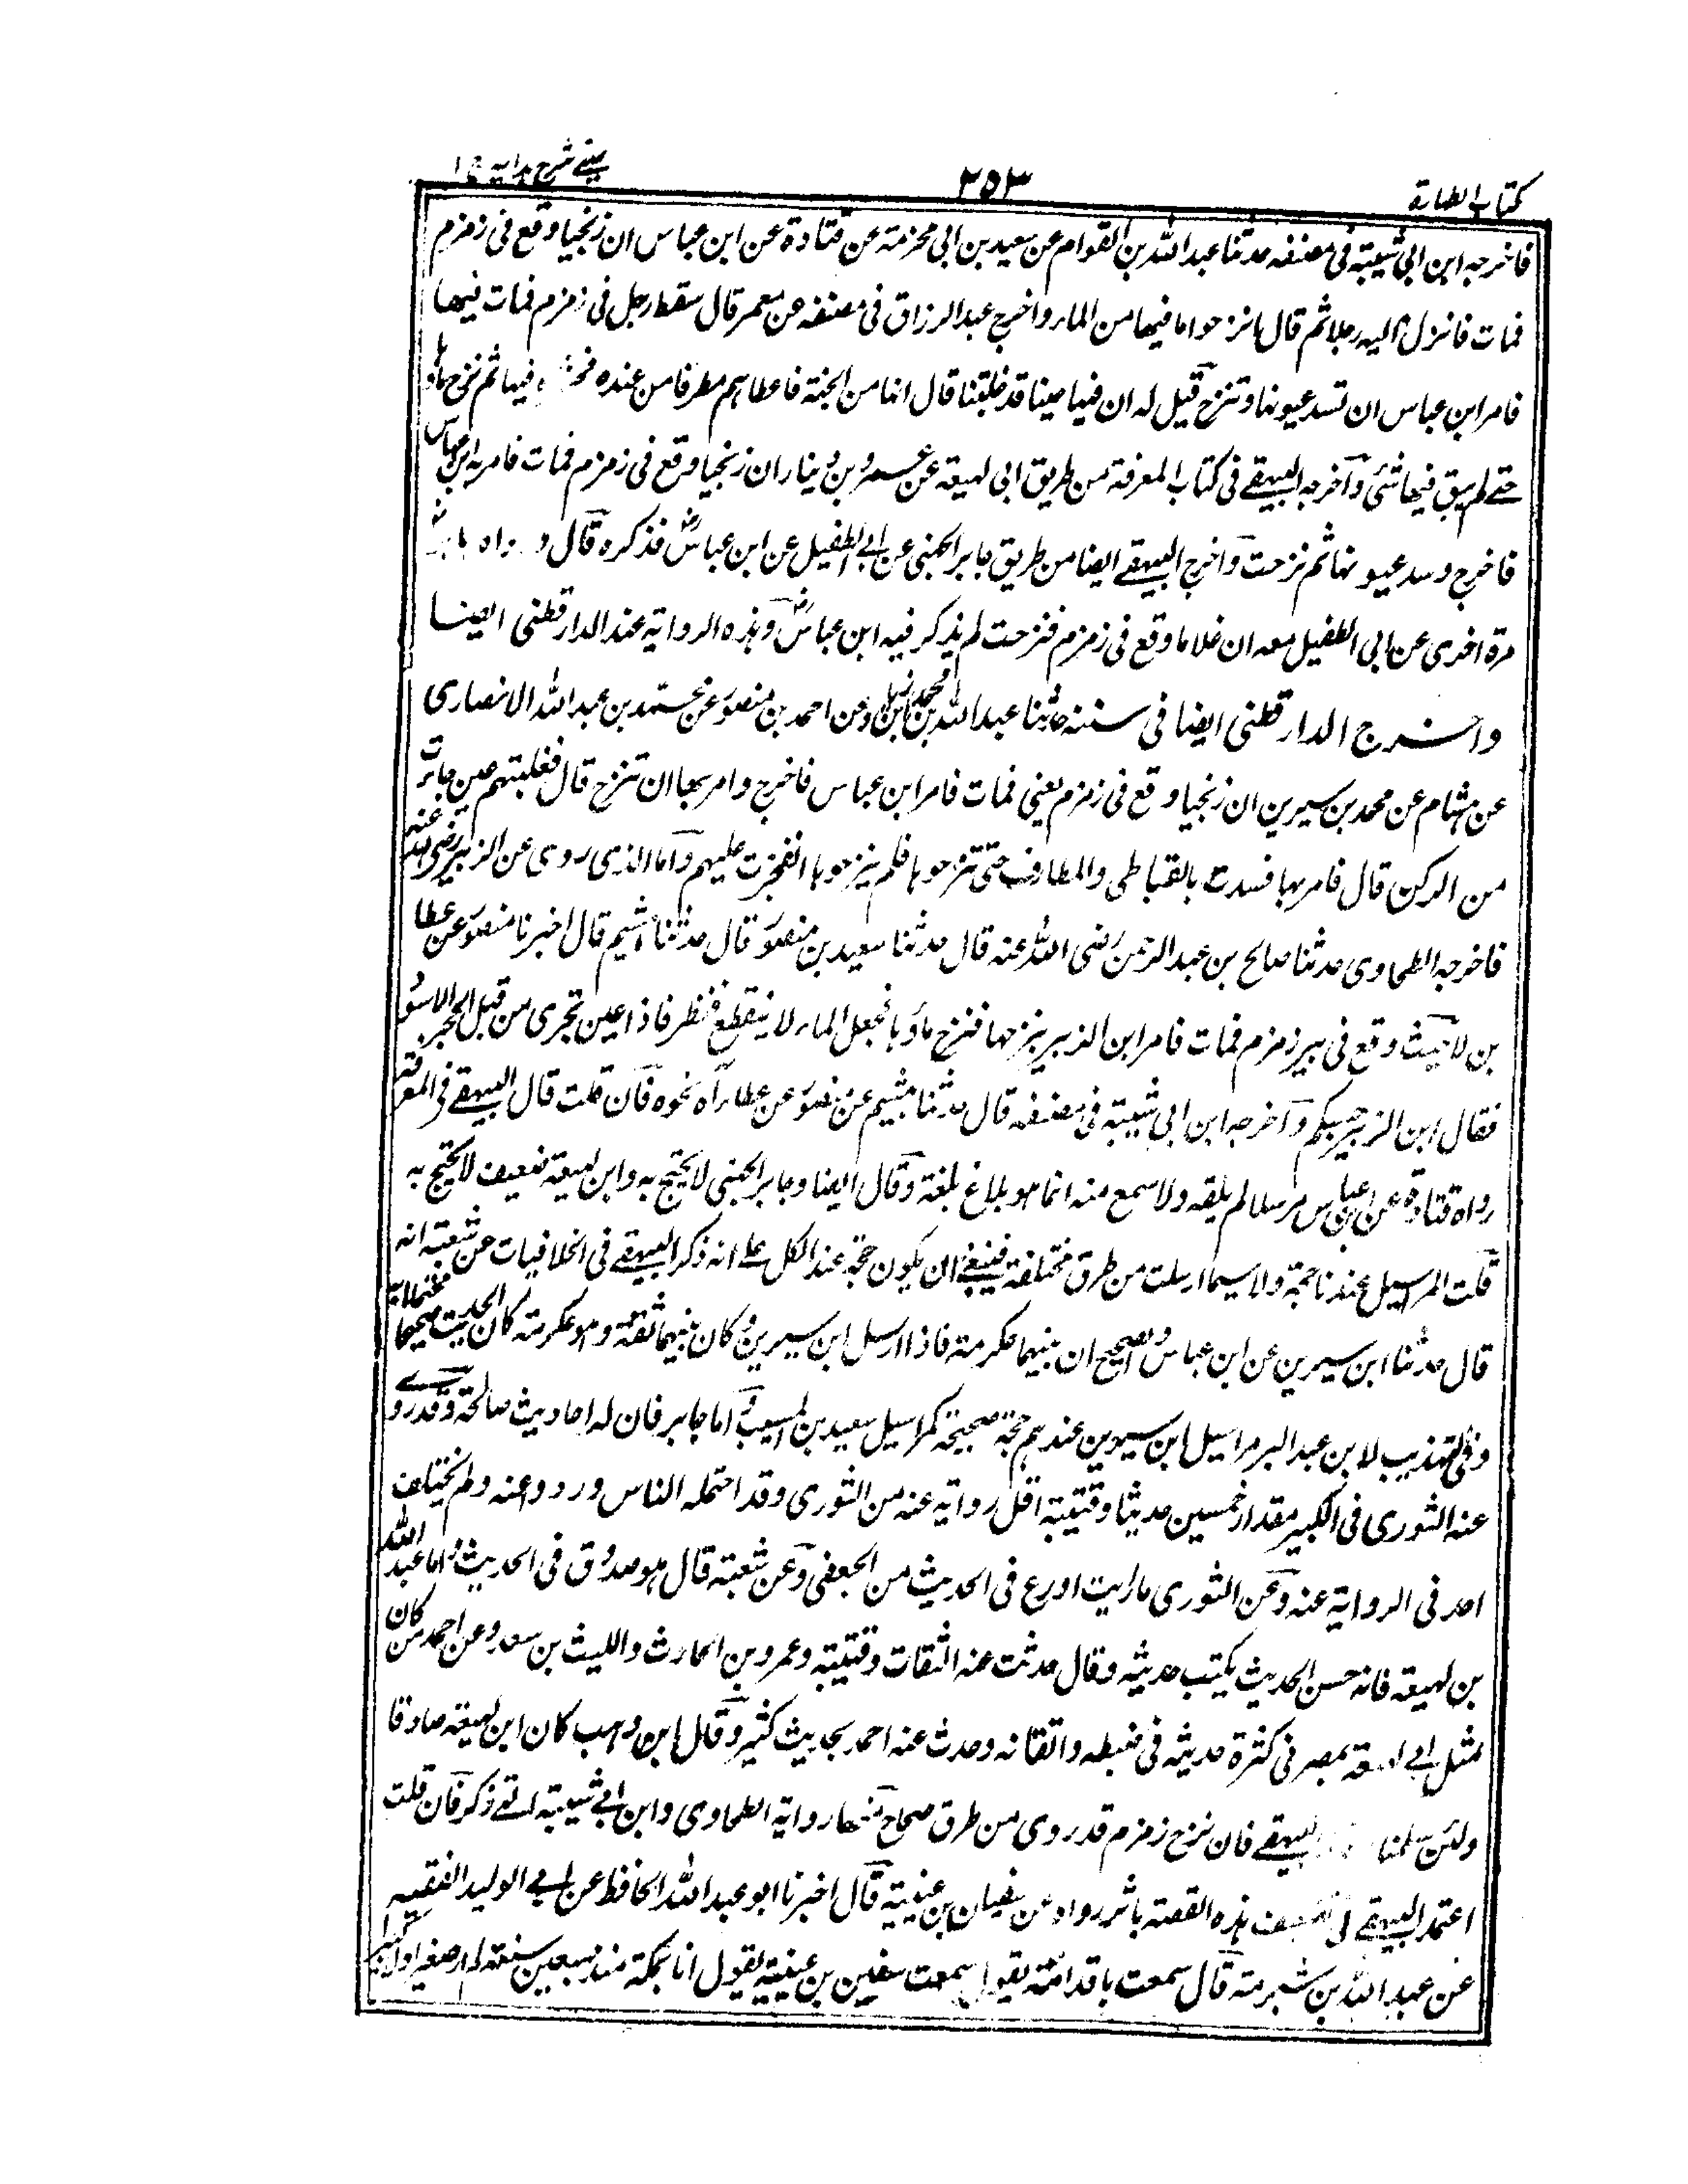 كتاب الطهارة
٢٥٣
عيني شرح هداية ج ١
فاخرجه ابن ابي شيبة في مصنفه حدثنا عبد الله بن القوام عن سعيد بن ابي محزمة عن قتادة عن ابن عباس ان زنجيا وقع في زمزم
فمات فانزل اليه رجلا ثم قال انزحوا ما فيها من الماء واخرج عبد الرزاق في مصنفه عن معمر قال سقط رجل في زمزم فمات فيها
فامر ابن عباس ان تسد عيونها وتنزح قيل له ان فيها عينا قد غلبتنا قال انها من الجنة فاعطاهم مطرفا من عنده فيها ثم نزح ماؤها
حتى لم يبق فيها شئ وآخرجه البيهقي في كتاب المعرفة من طريق ابن لهيعة عن عمرو بن دينار ان زنجيا وقع في زمزم فمات فامر به ابن عباس
فاخرج وسد عيونها ثم نزحت وآخرج البيهقي ايضا من طريق جابر الجعفي عن ابي الطفيل عن ابن عباسؓ فذكره قال ورواه جابر
مرة اخرى عن ابي الطفيل معه ان غلاما وقع في زمزم فنزحت لم يذكر فيه ابن عباسؓ وهذه الرواية عند الدار قطني ايضا
واخرج الدار قطني ايضا في سننه حدثنا عبد الله بن محمد بن زياد عن احمد بن منصور عن محمد بن عبد الله الانصاري
عن هشام عن محمد بن سيرين ان زنجيا وقع في زمزم يعني فمات فامر ابن عباس فاخرج وامر بها ان تنزح قال فغلبتهم عين جاءت
من الركن قال فامر بها فسدت بالقباطي والمطارف حتى تنزحوها فلم ينزحوها انفجرت عليهم وآما الذي روى عن الزبير رضي الله عنه
فاخرجه الطحاوي حدثنا صالح بن عبد الرحمن رضي الله عنه قال حدثنا سعيد بن منصور قال حدثنا هشيم قال اخبرنا منصور عن عطا
بن لا حيث وقع في بير زمزم فمات فامر ابن الزبير بنزحها فنزح ماؤها فجعل الماء لا ينقطع فنظر فاذا عين تجري من قبل الحجر الاسود
فقال ابن الزبير حسبكم وآخرجه ابن ابي شيبة في مصنفه قال حدثنا هشيم عن منصور عن عطاء راه نحوه فآن قلت قال البيهقي في المعرفة
رواه قتادة عن ابن عباس مرسلا لم يلقه ولا سمع منه انما هو بلاغ بلغة وقال ايضا وجابر الجعفي لا يحتج به وابن لهيعة ضعيف لا يحتج به
قلت المراسيل عندنا حجة ولا سيما ارسلت من طرق مختلفة فينبغي ان يكون حجة عند الكل على انه ذكر البيهقي في الخلافيات عن شعبة انه
قال حدثنا ابن سيرين عن ابن عباس والصحيح ان بينهما عكرمة فاذا ارسل ابن سيرين وكان بينهما ثقة وهو عكرمة كان الحديث صحيحا محتجا به
وفي التهذيب لابن عبد البر مراسيل ابن سيرين عندهم حجة صحيحة كمراسيل سعيد بن المسيب وآما جابر فان له احاديث صالحة وقد روى
عنه الثوري في الكبير مقدار خمسين حديثا وقتيبة اقل رواية عنه من الثوري وقد احتمله الناس ورووا عنه ولم يختلف
احد في الرواية عنه وعن الثوري ما رايت اورع في الحديث من الجعفي وعن شعبة قال هو صدوق في الحديث واما عبد الله
بن لهيعة فانه حسن الحديث يكتب حديثه وقال حدثت عنه الثقات وقتيبة وعمرو بن الحارث والليث بن سعد وعن احمد من كان
مثل ابن لهيعة بمصر في كثرة حديثه في ضبطه واتقانه وحدث عنه احمد بحديث كثير وقال ابن وهب كان ابن لهيعة صادقا
ولئن سلمنا البيهقي فان نزح زمزم قد روى من طرق صحاح منها رواية الطحاوي وابن ابي شيبة التي ذكر فآن قلت
اعتمد البيهقي في تضعيف هذه القصة باثر رواه عن سفيان بن عيينة قال اخبرنا ابو عبد الله الحافظ عن ابي الوليد الفقيه
عن عبد الله بن شبرمة قال سمعت باقدامة يقول سمعت سفين بن عيينة يقول انا بمكة منذ سبعين سنة لم ار صغيرا ولا كبيرا